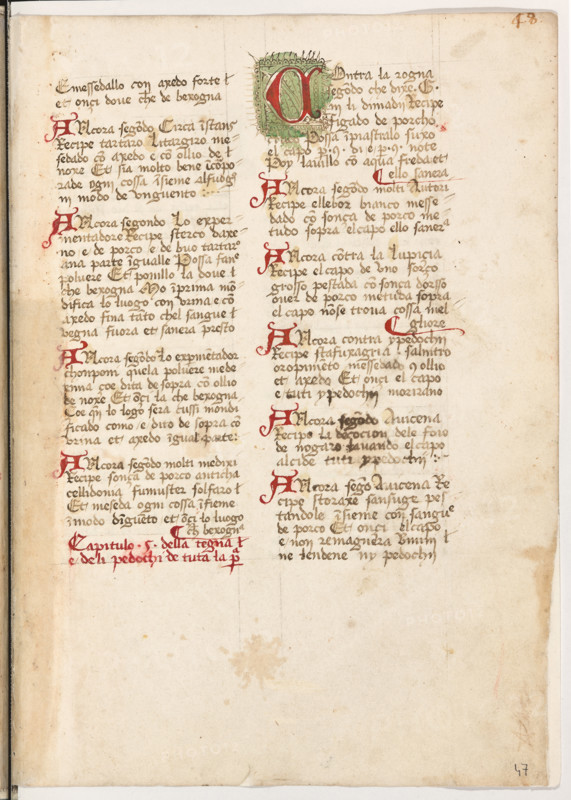 48
E messedallo con axedo forte ł
et onçi doue che de bexogna
ANcora seg̃ōdo Circa ĩstans
Recipe tartaro Litargiro me
sedado cō axedo e cō ollio de ł
noxe Et sia molto bene ĩcōpo
rade ogni cossa ĩsieme
in modo de vnguento
ANcora segondo Lo exper
imentadore Recipe sterco daxe
no e de porco e de buo tartar
ana parte igualle Possa fane
poluere Et ponillo la doue ł
che bexogna Mo ĩprima mō
difica lo luogo con vrina e cō
axedo fina tāto chel sangue ł
vegna fuora et sanera presto
ANcora seg̃ōdo Lo expimētador
chonponi quela poluere mede
xima coe dita de sopra cō ollio
de noxe Et ōçi la che bexogna
Coe q̃l lo logo sera cussi mondi
ficado como e dito de sopra cō
vrina et axedo igual parte
ANcora seg̃ōdo molti medixi
Recipe sonça de porco anticha
cellidonia fumuster solfaro ł
Et meseda ogni cossa ĩsieme
ĩ modo dūgueto et ōçi lo luogo
ch bexogna
Capitulo .5. della tegna ł
e deli pedochi de tuta la p̃
COntra la rogna
seg̃ōdo che dixe G.
in li dimidij Recipe
figado de porcho
Possa ĩpiastralo suxo
el capo p .9. di e p .9. note
Poy laiallo cō aqua freda et
ello sanera
ANcora seg̃ōdo molti Autori
Recipe ellebor bianco messe
dado cō sonça de porco me
tudo sopra el capo ello sanera
ANcora cōtra la lupicia
Recipe el capo de vno sorço
grosso pestada cō sonça dorsso
ouer de porco metuda sopra
el capo nōse troua cossa mel
gliore
ANcora contra ypedochij
Recipe stafuxagria salnitro
oropimeto messedado 9 ollio
et axedo Et onçi el capo
e tuti ypedochij morirano
ANcora seg̃ōdo Auicena
Recipe La decocion dele foio
de nogara lauando el capo
alcide tuti ypedochij
ANcora seg̃o Auicena Re
cipe storaxe sansuge pes
tandole ĩsieme con sangue
de porco Et onci el capo
e non remagnera vnim ł
ne lendene ny pedochij
47